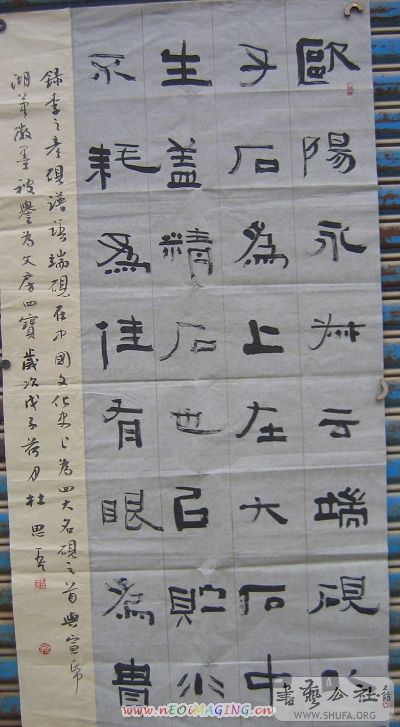 歐陽永叔云端硯以
子石爲上在大石中
生盖精石也以貯水
不耗爲佳有眼爲貴
録李之彦硯譜語端硯在中國文化史上為四大名硯之首與宣帋
湖筆徽墨被譽為文房四寶歲次戊子荷月杜思
書藝公社
WWW.SHUFA.ORG
www.nEOiMAGING.cn